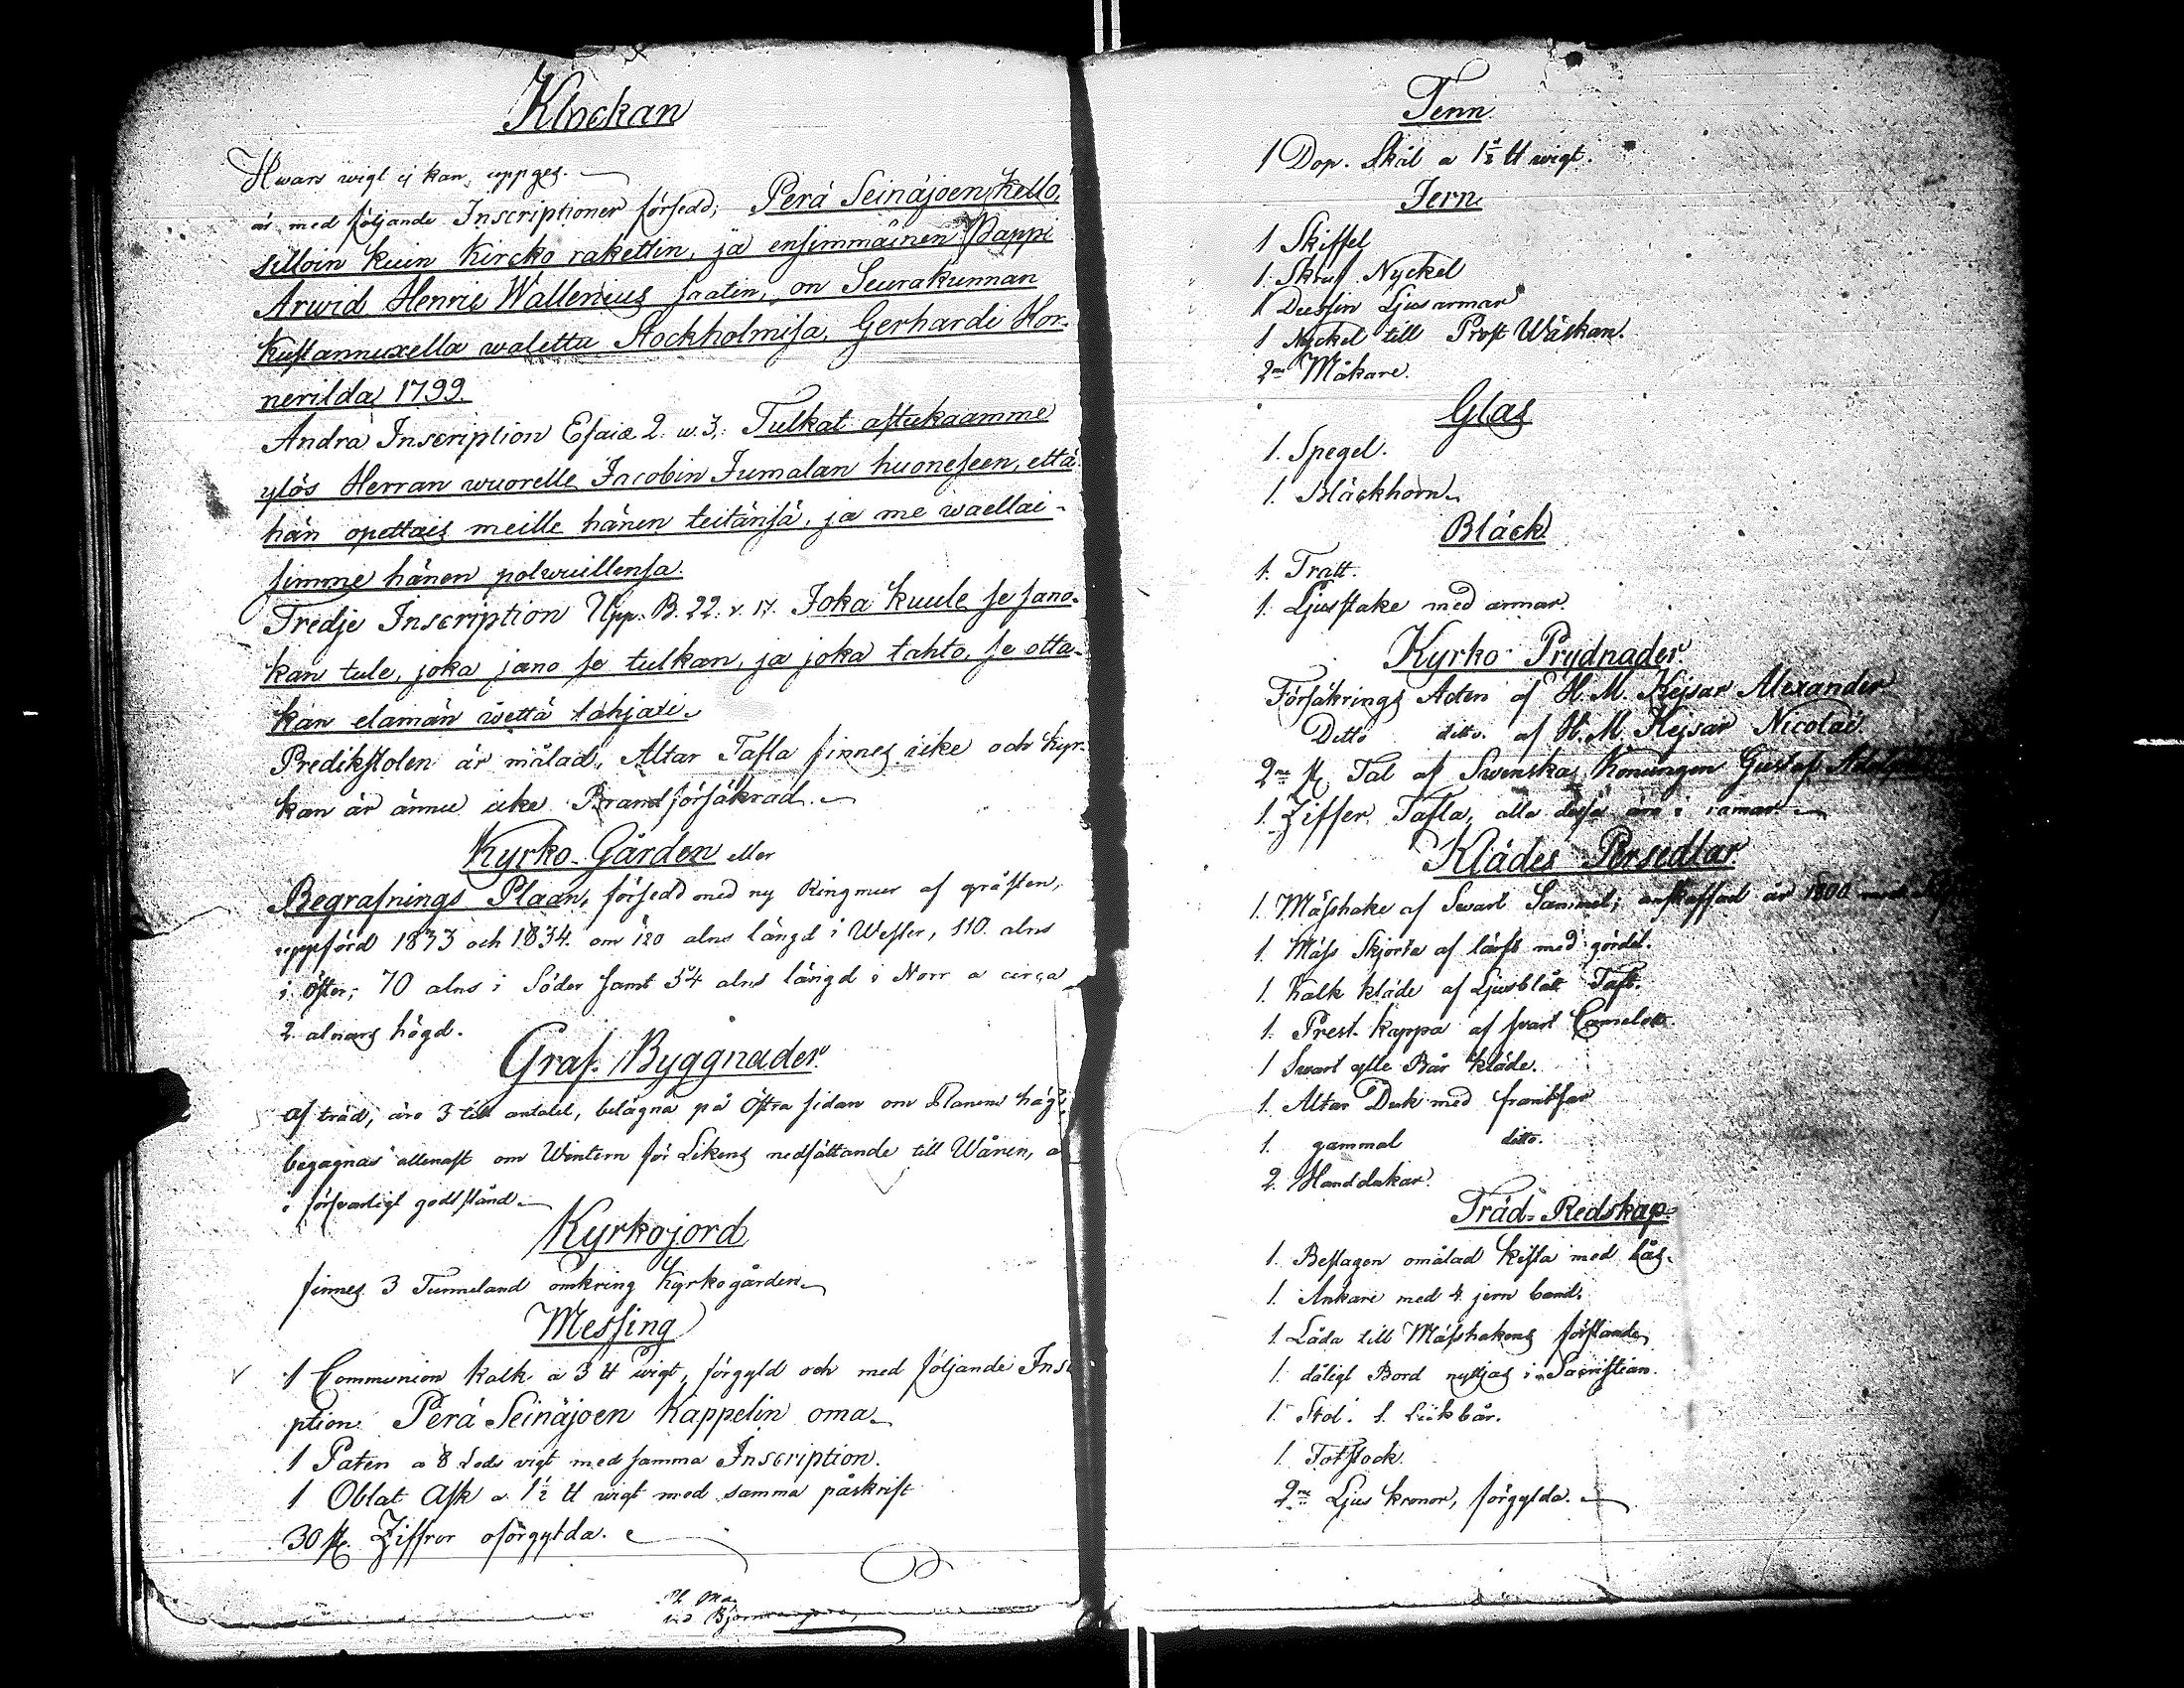 Klockan
Hwars wigt ej kan uppges.
är med följande Inscriptioner försedd; Perä Seinäjoen Kello,
silloin kuin Kircko rakettin, ja ensimmäinen Pappi
Arwid Henric Wallenius saatin, on Seurakunnan
Kustannuxella waletta Stockholmisa, Gerhardi Hor-
nerilda 1799.
Andra Inscription Esaiæ 2. w. 3,: Tulkat astukaamme
ylös Herran wuorelle Jacobin Jumalan huoneseen, että
hän opettais meille hänen teitänsä, ja me waellai-
simme hänen polwuillensa.
Tredje Inscription Upp. B. 22. v. 17. Joka kuule se sano-
kan tule, joka jano se tulkan, ja joka tahto, se otta-
kan elamän wettä lahjaxi.
Predikstolen är målad, Altar Tafla finnes icke och Kyr-
kan är ännu icke Brandförsäkrad.
Kyrko-Gården eller
Begrafnings Plaan, försedd med ny Ringmur af gråsten,
uppförd 1833 och 1834. om 120 alns längd i Wester, 110 alns
i Öster; 70 alns i Söder samt 54 alns längd i Norr a circa
2 alnars högd.
Graf-Byggnader
af träd, äro 3 till antalet, belägna på Östra sidan om Planens
begagnas allenast om Wintern för Likens nedsättande till Wåren,
i försvarligt godt stånd
Kyrkojord
finnes 3 Tunneland omkring Kyrkogården
Messing
1 Communion Kalk a 3 ℔ wigt, förgyld och med följande Inscri
ption: Perä Seinäjoen Kappelin oma
1 Paten a 8 Lods vigt med samma Inscription.
1 Oblat Ask a 1½ ℔ wigt med samma påskrift
30 st. Ziffror oförgylda.
Tenn
1 Dop. Skål a 1½ ℔ wigt.
Jern
1 Skiffel
1. Skruf Nyckel
1 Dussin Ljusarmar
1 Nyckel till Prost Wäskan.
2ne Måkare.
Glas
1. Spegel.
1. Bläckhorn
Bläck
1. Tratt.
1. Ljusstake med armar.
Kyrko Prydnader
Försäkrings Acten af H. M. Kejsar Alexander
Ditto ditto. af H. M. Kejsar Nicolai
2ne st. Tal af Swenska Konungen Gustaf Adolph
1. Ziffer Tafla, alla dessa äro i ramar
Klädes Persedlar
1. Mässhake af Swart Sammet; anskaffad år 1800 med
1. Mäss Skjorta af lärft med gördel.
1. Kalk kläde af Ljusblått Taft.
1. Prest. kappa af svart Camelott.
1 Swart ylle Bår kläde.
1. Altar Duk med frantsar
1. gammal ditto.
2. Handdukar.
Träd-Redskap
1. Beslagen omålad Kista med lås.
1. Ankare med 4 jern band.
1 Låda till Mässhakens förstånde
1. dåligt Bord nyttjas i Sacristian.
1. Stol. 1. Likbår.
1. Fotstock.
2ne Ljus kronor, förgylda.